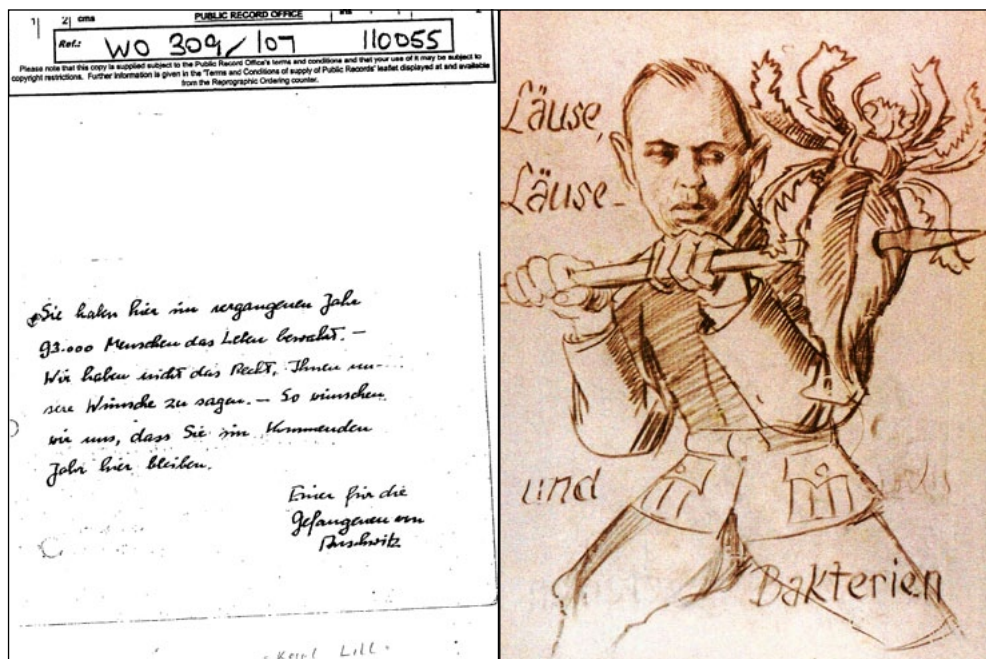 1| 2| cms PUBLIC RECORD OFFICE ins 1
Ref.: WO 309/107 110055
Please note that this copy is supplied subject to the Public Record Office's terms and conditions and that your use of it may be subject to
copyright restrictions. Further information is given in the 'Terms and Conditions of supply of Public Records' leaflet displayed at and available
from the Reprographic Ordering counter.
Sie haben hier im vergangenen Jahr
93.000 Menschen das Leben bewahrt. –
Wir haben nicht das Recht, Ihnen un-
sere Wünsche zu sagen. – So wünschen
wir uns, dass Sie im Kommenden
Jahr hier bleiben.
Einer für die
Gefangenen von
Auschwitz
Karl Lill.
Läuse,
Läuse –
und
Bakterien